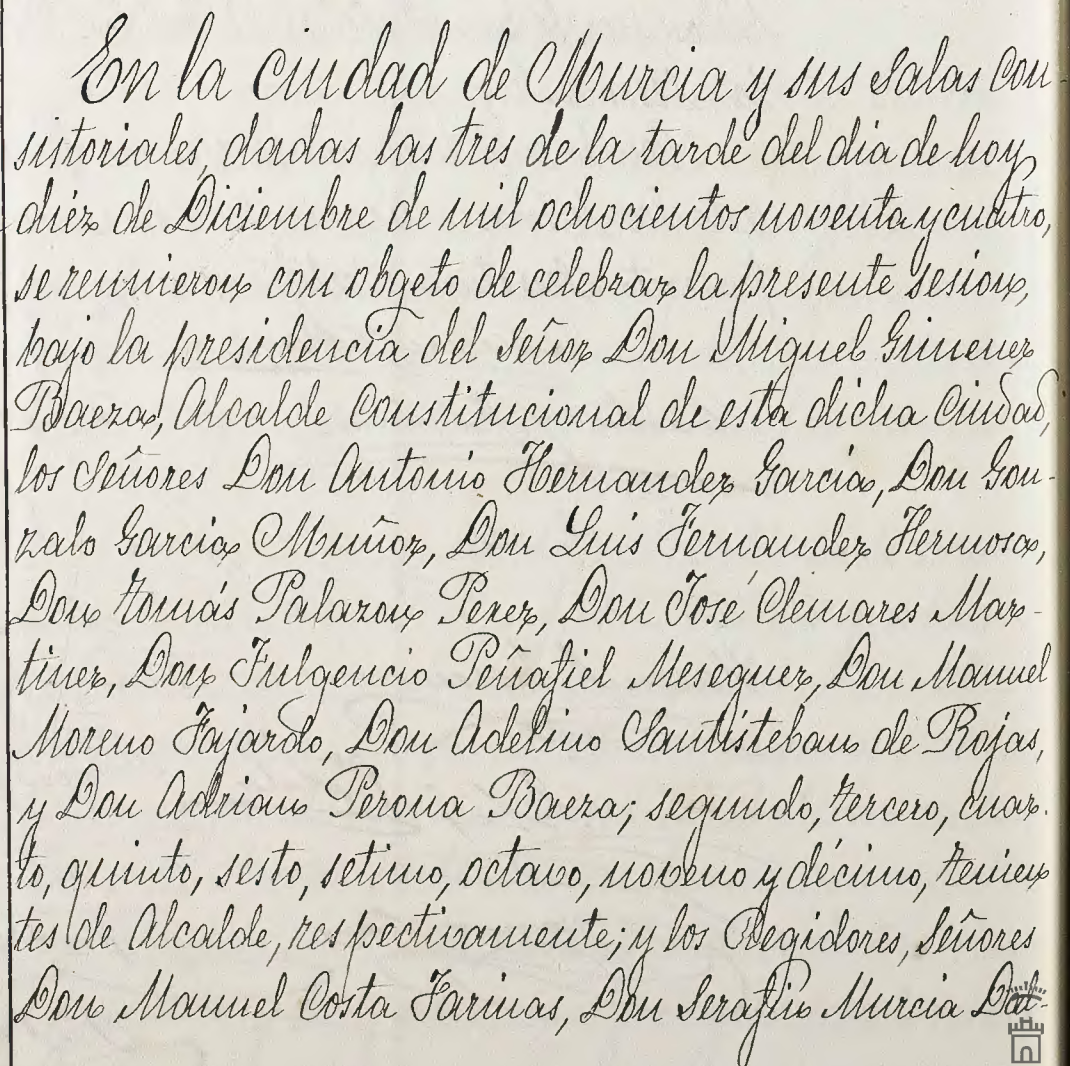 En la ciudad de Murcia y sus Salas Con-
sistoriales, dadas las tres de la tarde del dia de hoy
diéz de Diciembre de mil ochocientos noventa y cuatro,
se reunieron con obgeto de celebrar la presente sesion,
bajo la presidencia del Señor Don Miguel Gimenez
Baeza, Alcalde Constitucional de esta dicha Ciudad,
los Señores Don Antonio Hernandez Garcia, Don Gon-
zalo Garcia Muñoz, Don Luis Fernandez Hermosa,
Don Tomás Palazon Perez, Don José Clemares Mar-
tinez, Don Fulgencio Peñafiel Meseguer, Don Manuel
Moreno Fajardo, Don Adelino Santisteban de Rojas,
y Don Adrian Perona Baeza; segundo, tercero, cuar-
to, quinto, sesto, setimo, octavo, noveno y décimo, tenien
tes de Alcalde, respectivamente; y los Regidores, Señores
Don Manuel Costa Farinas, Don Serafin Murcia